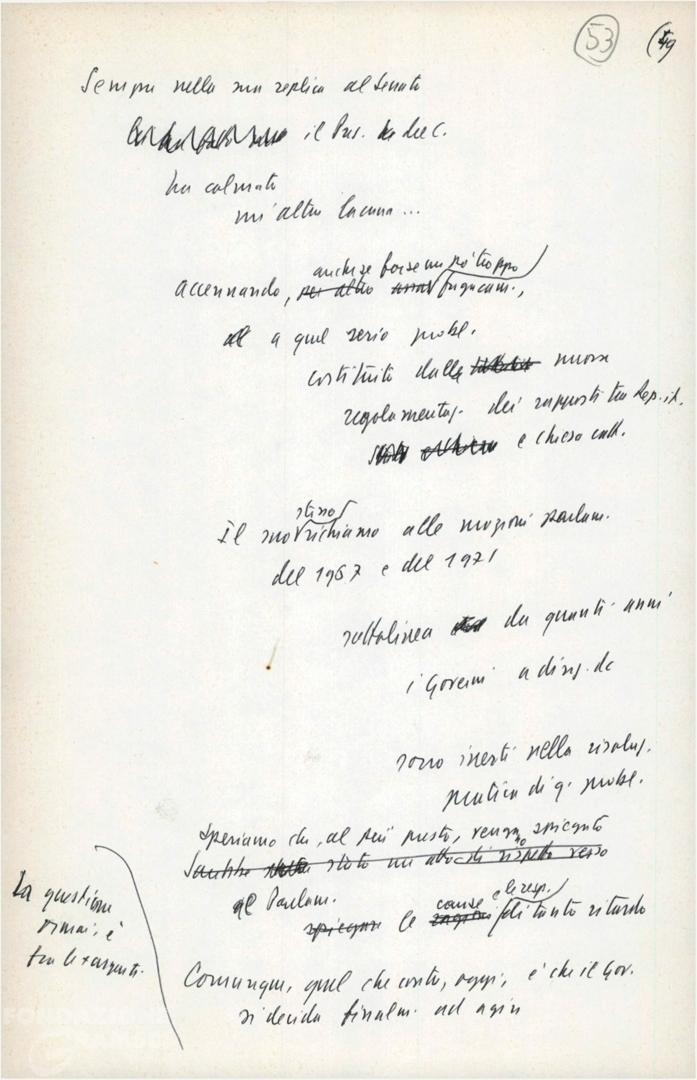 53 49
Sempre nella sua replica al Senato
il Pres. del C.
ha colmato
un'altra lacuna...
anche se forse un po' troppo
accennando, per altro assai fugacam.,
a quel serio probl.
costituito dalla nuova
regolamentaz. dei rapporti tra Rep. it.
e chiesa catt.
stesso
Il suo richiamo alle mozioni parlam.
del 1967 e del 1971
sottolinea da quanti anni
i Governi a direz. dc
sono inerti nella risoluz.
pratica di q. probl.
Speriamo che, al più presto, vengano spiegate
Sarebbe stato un atto di rispetto verso
al Parlam.
cause e le resp.
spiegare le ragioni di tanto ritardo
La questione
ormai, è
tra le + urgenti.
Comunque, quel che conta, oggi, è che il Gov.
si decida finalm. ad agire